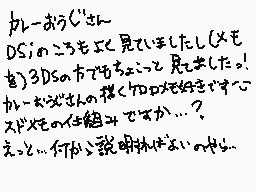 カレーおうじさん
DSiのころもよく見ていましたし(メモ
を)3DSの方でもちょこっと見てましたっ!
カレーおうじさんの描くケロロメモ好きです〜
スドメモの仕組みですか...?
えっと...何から説明すればよいのやら...